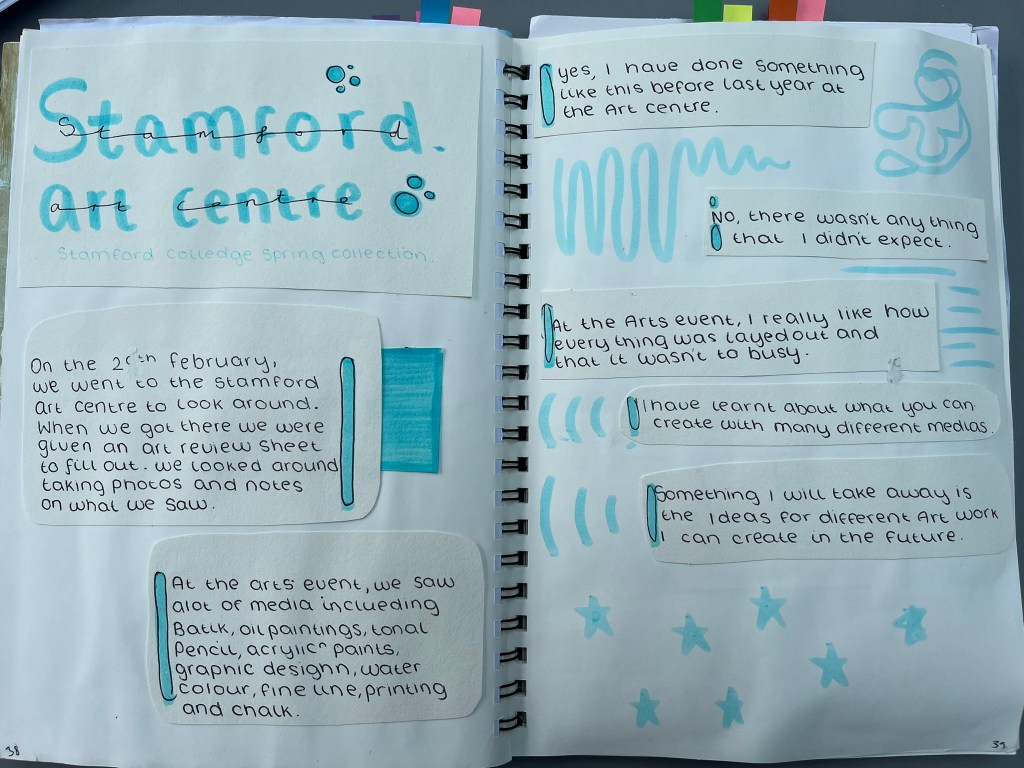 Stamford.
Stamford
art centre
art centre
Stamford colledge spring collection.
On the 2 th february,
we went to the stamford
art centre to look around.
When we got there we were
given an art review sheet
to fill out. we looked around
taking photos and notes
on what we saw.
At the arts event, we saw
alot of media inclueding
Batik, oil paintings, tonal
Pencil, acrylic paints,
graphic designn, water
colour, fine line, printing
and chalk.
38
yes, I have done something
like this before last year at
the Art centre.
No, there wasn't any thing
that I didn't expect.
At the Arts event, I really like how
every thing was layed out and
that it wasn't to busy.
I have learnt about what you can
create with many different medias.
Something I will take away is
the Ideas for different Art work
I can create in the future.
39